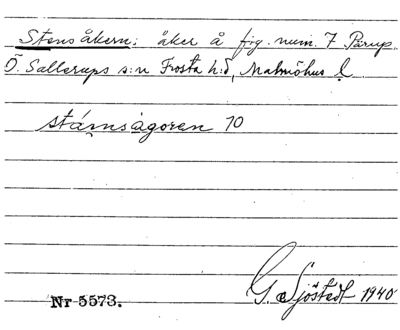 Stensåkern: åker å fig. num. 7 Pårup.
Ö. Sallerups s:n Frosta h:d, Malmöhus l.
stá́msågoren 10
G. Sjöstedt 1940
Nr 5573.